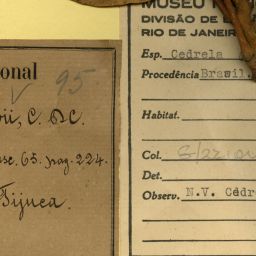 onal
95
ii, C. DC.
65. pag. 224.
Tijuca.
MUSEU
DIVISÃO DE
RIO DE JANEIR
Esp. Cedrela
Procedência Brasil.
Habitat.
Col.
Det.
Observ. N.V. Cedr